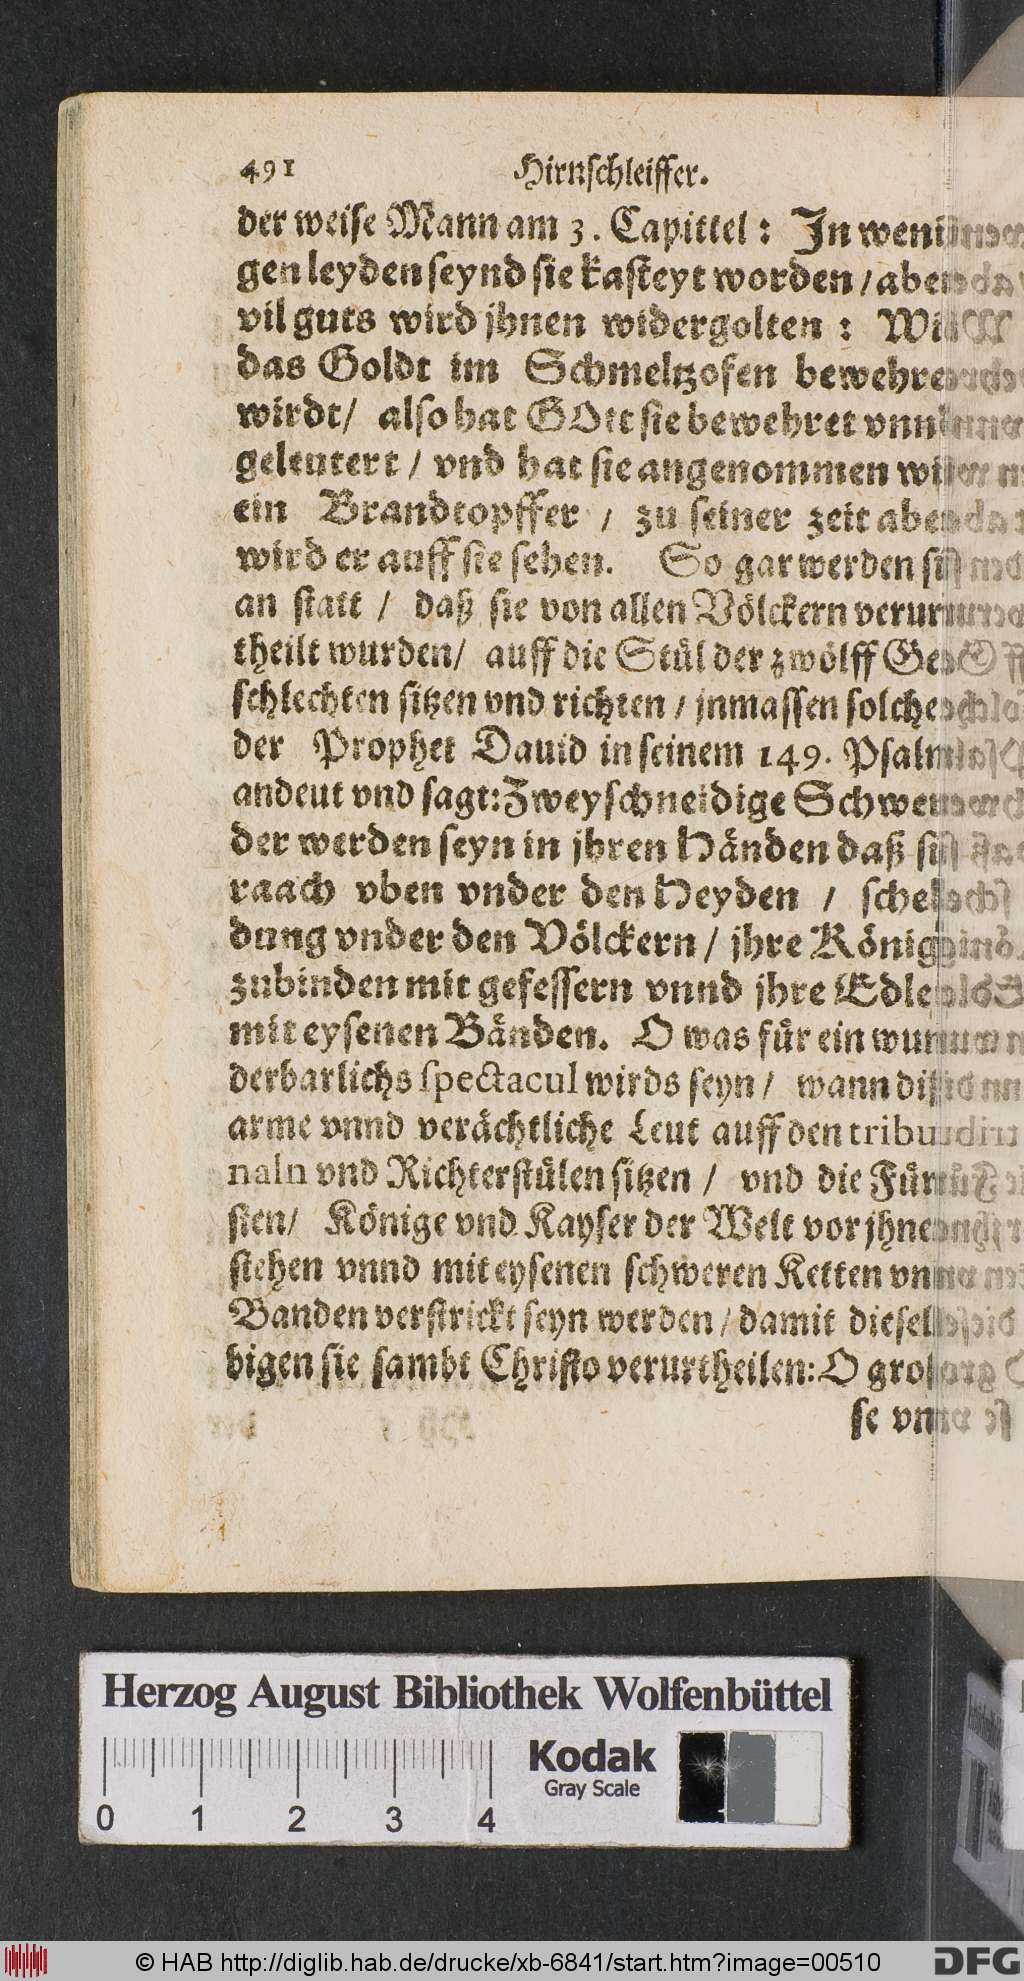 491 Hirnschleiffer.
der weise Mann am 3. Capittel: In weni-
gen leyden seynd sie kasteyt worden / aber
vil guts wird jhnen widergolten: Wie
das Goldt im Schmeltzofen bewehret
wirdt/ also hat GOtt sie bewehret vnnd
geleutert / vnd hat sie angenommen wie
ein Brandtopffer / zu seiner zeit aber
wird er auff sie sehen. So gar werden sie
an statt / daß sie von allen Völckern verur-
theilt wurden/ auff die Stůl der zwölff Ge-
schlechten sitzen vnd richten / jnmassen solches
der Prophet Dauid in seinem 149. Psalm
andeut vnd sagt: Zweyschneidige Schwer-
der werden seyn in jhren Händen daß sie
raach vben vnder den Heyden / schel-
dung vnder den Völckern / jhre König
zubinden mit gefessern vnnd jhre Edle
mit eysenen Bänden. O was fůr ein wun-
derbarlichs spectacul wirds seyn / wann dise
arme vnnd verächtliche Leut auff den tribu-
naln vnd Richterstůlen sitzen / vnd die Fůr-
sten/ Könige vnd Kayser der Welt vor jhnen
stehen vnnd mit eysenen schweren Ketten vnnd
Banden verstrickt seyn werden / damit diesel-
bigen sie sambt Christo verurtheilen: O gros-
se vn-
Herzog August Bibliothek Wolfenbüttel
Kodak
Gray Scale
0 1 2 3 4
© HAB http://diglib.hab.de/drucke/xb-6841/start.htm?image=00510
DFG